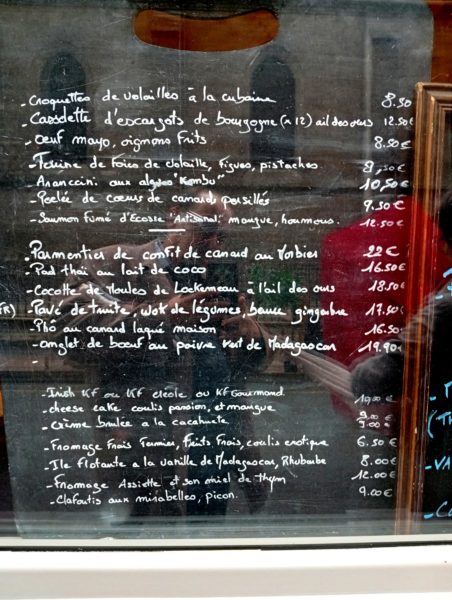 - Croquettes de volailles à la cubaine 8.50
- Cassolette d'escargots de bourgogne (x12) ail des ours 12.50€
- Oeuf mayo, oignons frits 8.50€
- Terrine de Foies de volaille, figues, pistaches 8,50€
Aranccini aux algues "Kombu" 10,50€
- Poelée de coeurs de canard persillés 9.50€
- Saumon Fumé d'Ecosse "Artisanal" mangue, houmous. 12.50€
- Parmentier de confit de canard au Morbier 22€
- Pad thaï au lait de coco 16.50€
- Cocotte de Moules de Lockemeau à l'ail des ours 18.50€
FR) - Pavé de truite, wok de légumes, beurre gingembre 17.50€
- Phô au canard laqué maison 16.50€
- onglet de boeuf au poivre vert de Madagascar 19.90€
-
- Irish Kf ou Kf créole ou Kf Gourmand 10,00€
- cheese cake coulis passion, et mangue 9.00€
- Crème brulée a la cacahuete 9.00€
- Fromage Frais Fermier, Fruits Frais, coulis exotique 6.50€
- Ile flotante a la vanille de Madagascar, Rhubarbe 8.00€
- Fromage Assiette et son miel de thym 12.00€
- Clafoutis aux mirabelles, picon. 9.00€
(TH
- VA